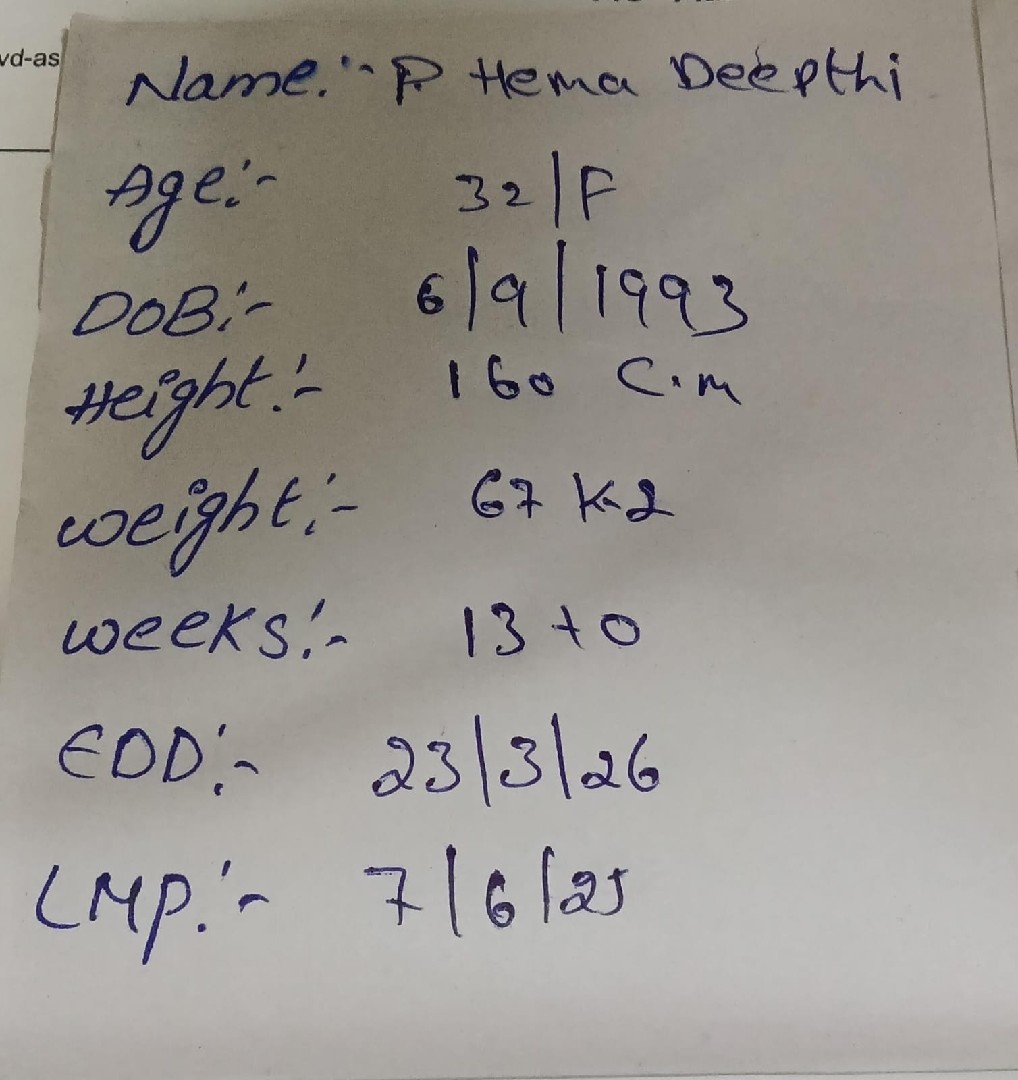 vd-as
Name:- P. Hema Deepthi
Age:- 32/F
DOB:- 6/9/1993
Height:- 160 C.m
weight:- 67 K.g
weeks:- 13+0
EDD:- 23/3/26
LMP:- 7/6/25